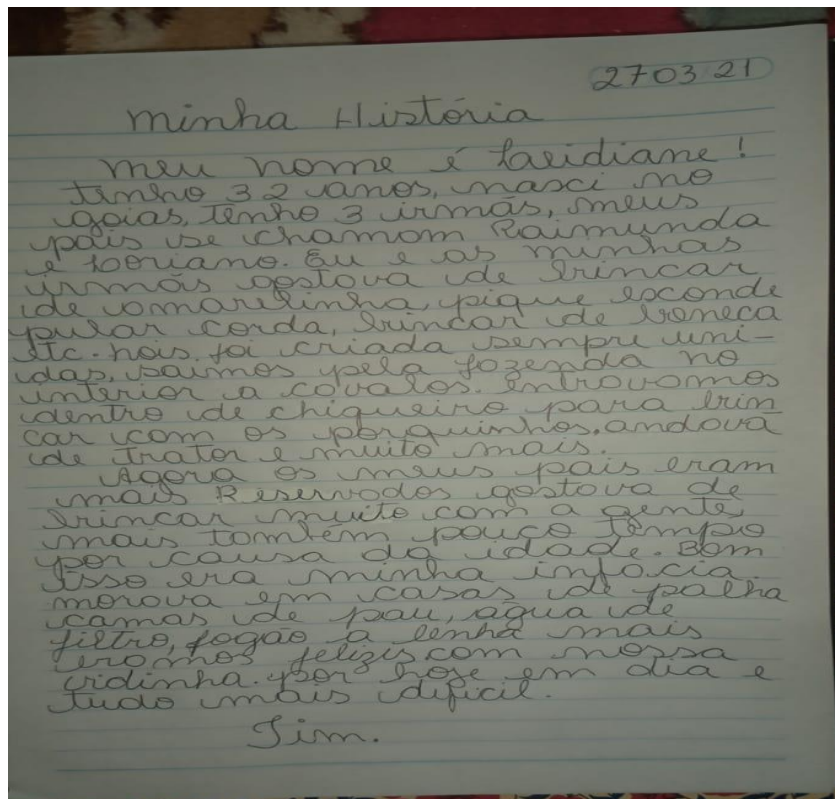 27 03 21
Minha História
Meu nome é Leidiane!
tenho 32 anos, nasci no
goias, tenho 3 irmãs, meus
pais se chamam Raimunda
e Loriano. Eu e as minhas
irmãs gostava de brincar
de amarelinha, pique esconde
pular corda, brincar de boneca
etc. nois foi criada sempre uni-
das, saimos pela fazenda no
interior a cavalos. Entravamos
dentro de chiqueiro para brin
car com os porquinhos, andava
de trator e muito mais.
Agora os meus pais eram
mais Reservados gostava de
brincar muito com a gente
mais também pouco tempo
por causa da idade. Bom
isso era minha infacia
morava em casas de palha
camas de pau, agua de
filtro, fogão a lenha mais
eramos felizes com nossa
vidinha. por hoje em dia e
tudo mais dificil.
Fim.